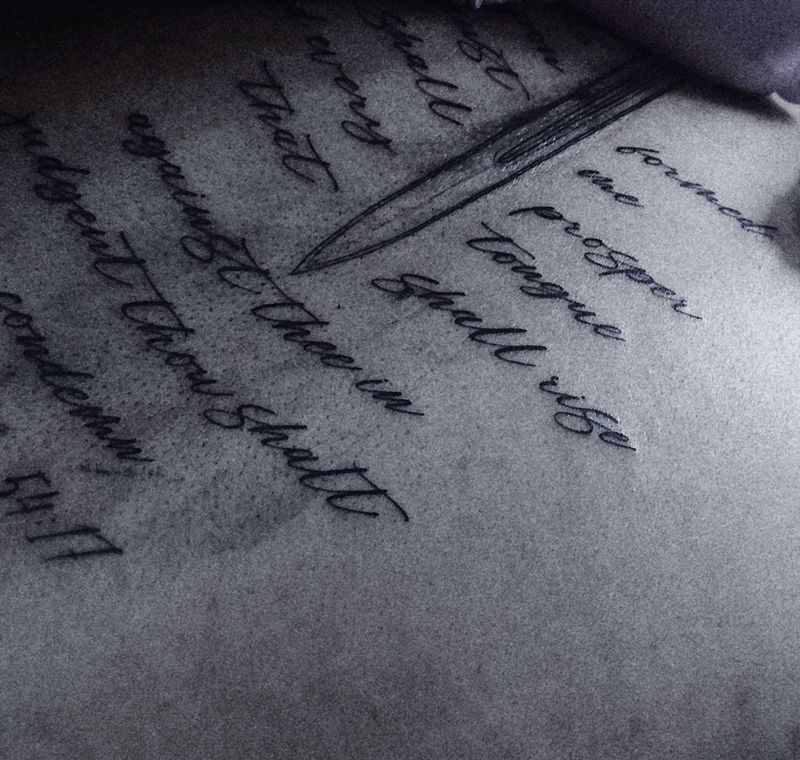 formed
me
shall prosper
every tongue
that shall rise
against thee in
judgent thou shalt
condemn
54:17